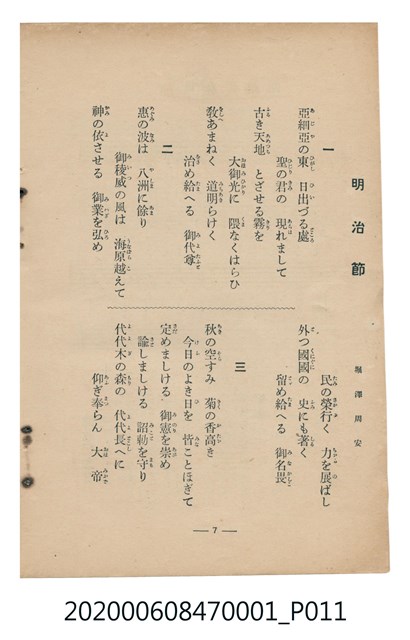 明治節
堀澤周安
一
亞細亞の東 日出づる處
聖の君の 現れまして
古き天地 とざせる霧を
大御光に 隈なくはらひ
敎あまねく 道明らけく
治め給へる 御代尊
二
惠の波は 八洲に餘り
御稜威の風は 海原越えて
神の依させる 御業を弘め
民の榮行く 力を展ばし
外つ國國の 史にも著く
留め給へる 御名畏
三
秋の空すみ 菊の香高き
今日のよき日を 皆ことほぎて
定めましける 御憲を崇め
諭しましける 詔勅を守り
代代木の森の 代代長へに
仰ぎ奉らん 大帝
— 7 —
202000608470001_P011